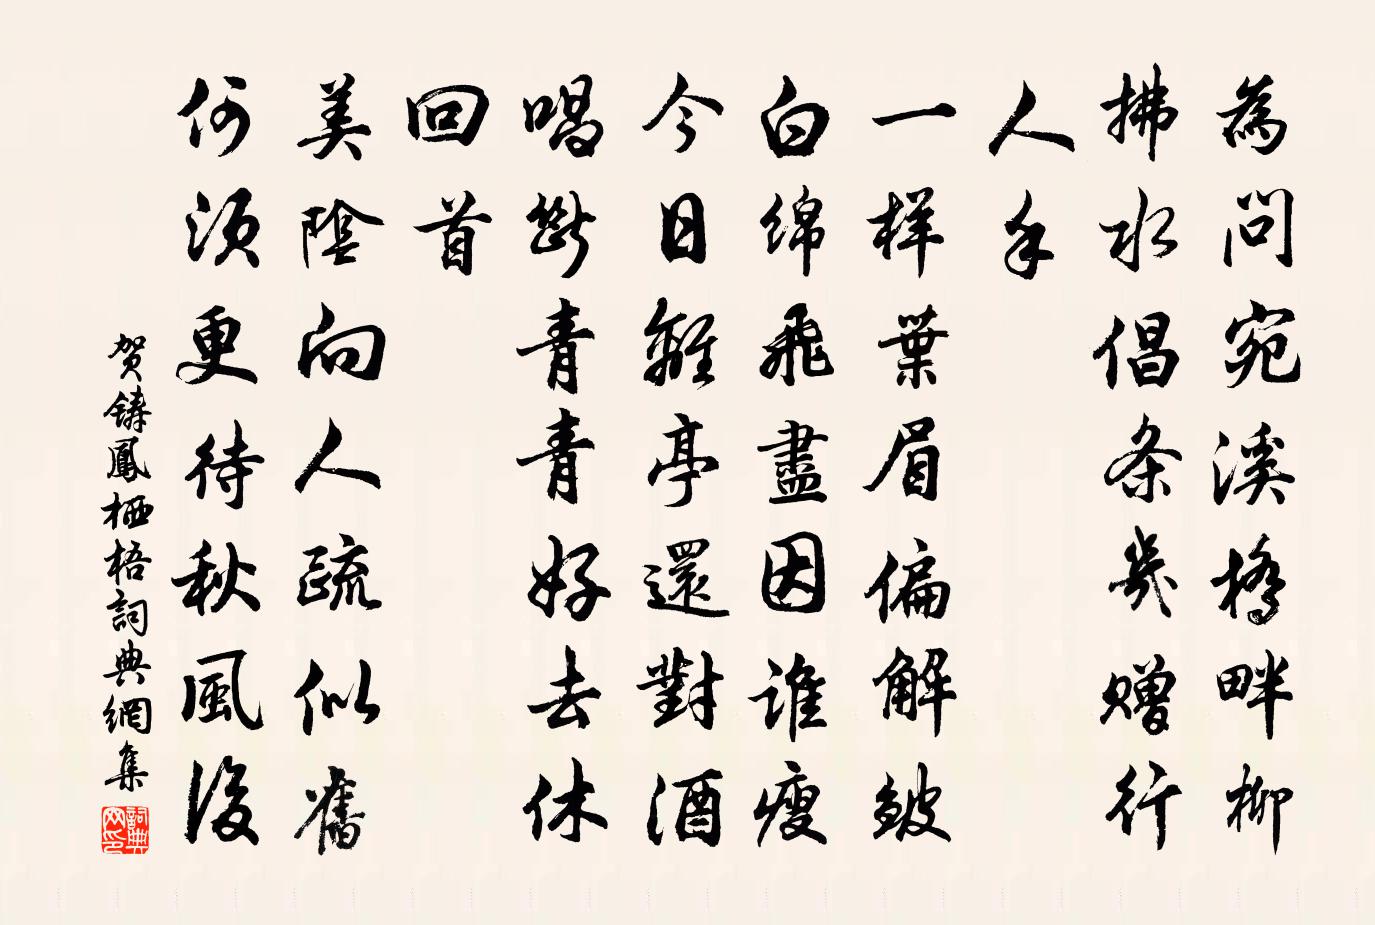 為問宛溪橋畔柳
拂水倡条幾贈行
人手
一样葉眉偏解皺
白绵飛盡因谁瘦
今日離亭還對酒
唱斷青青好去休
回首
美陰向人疏似舊
何须更待秋風後
贺鑄鳳栖梧詞典網集
詞典网印